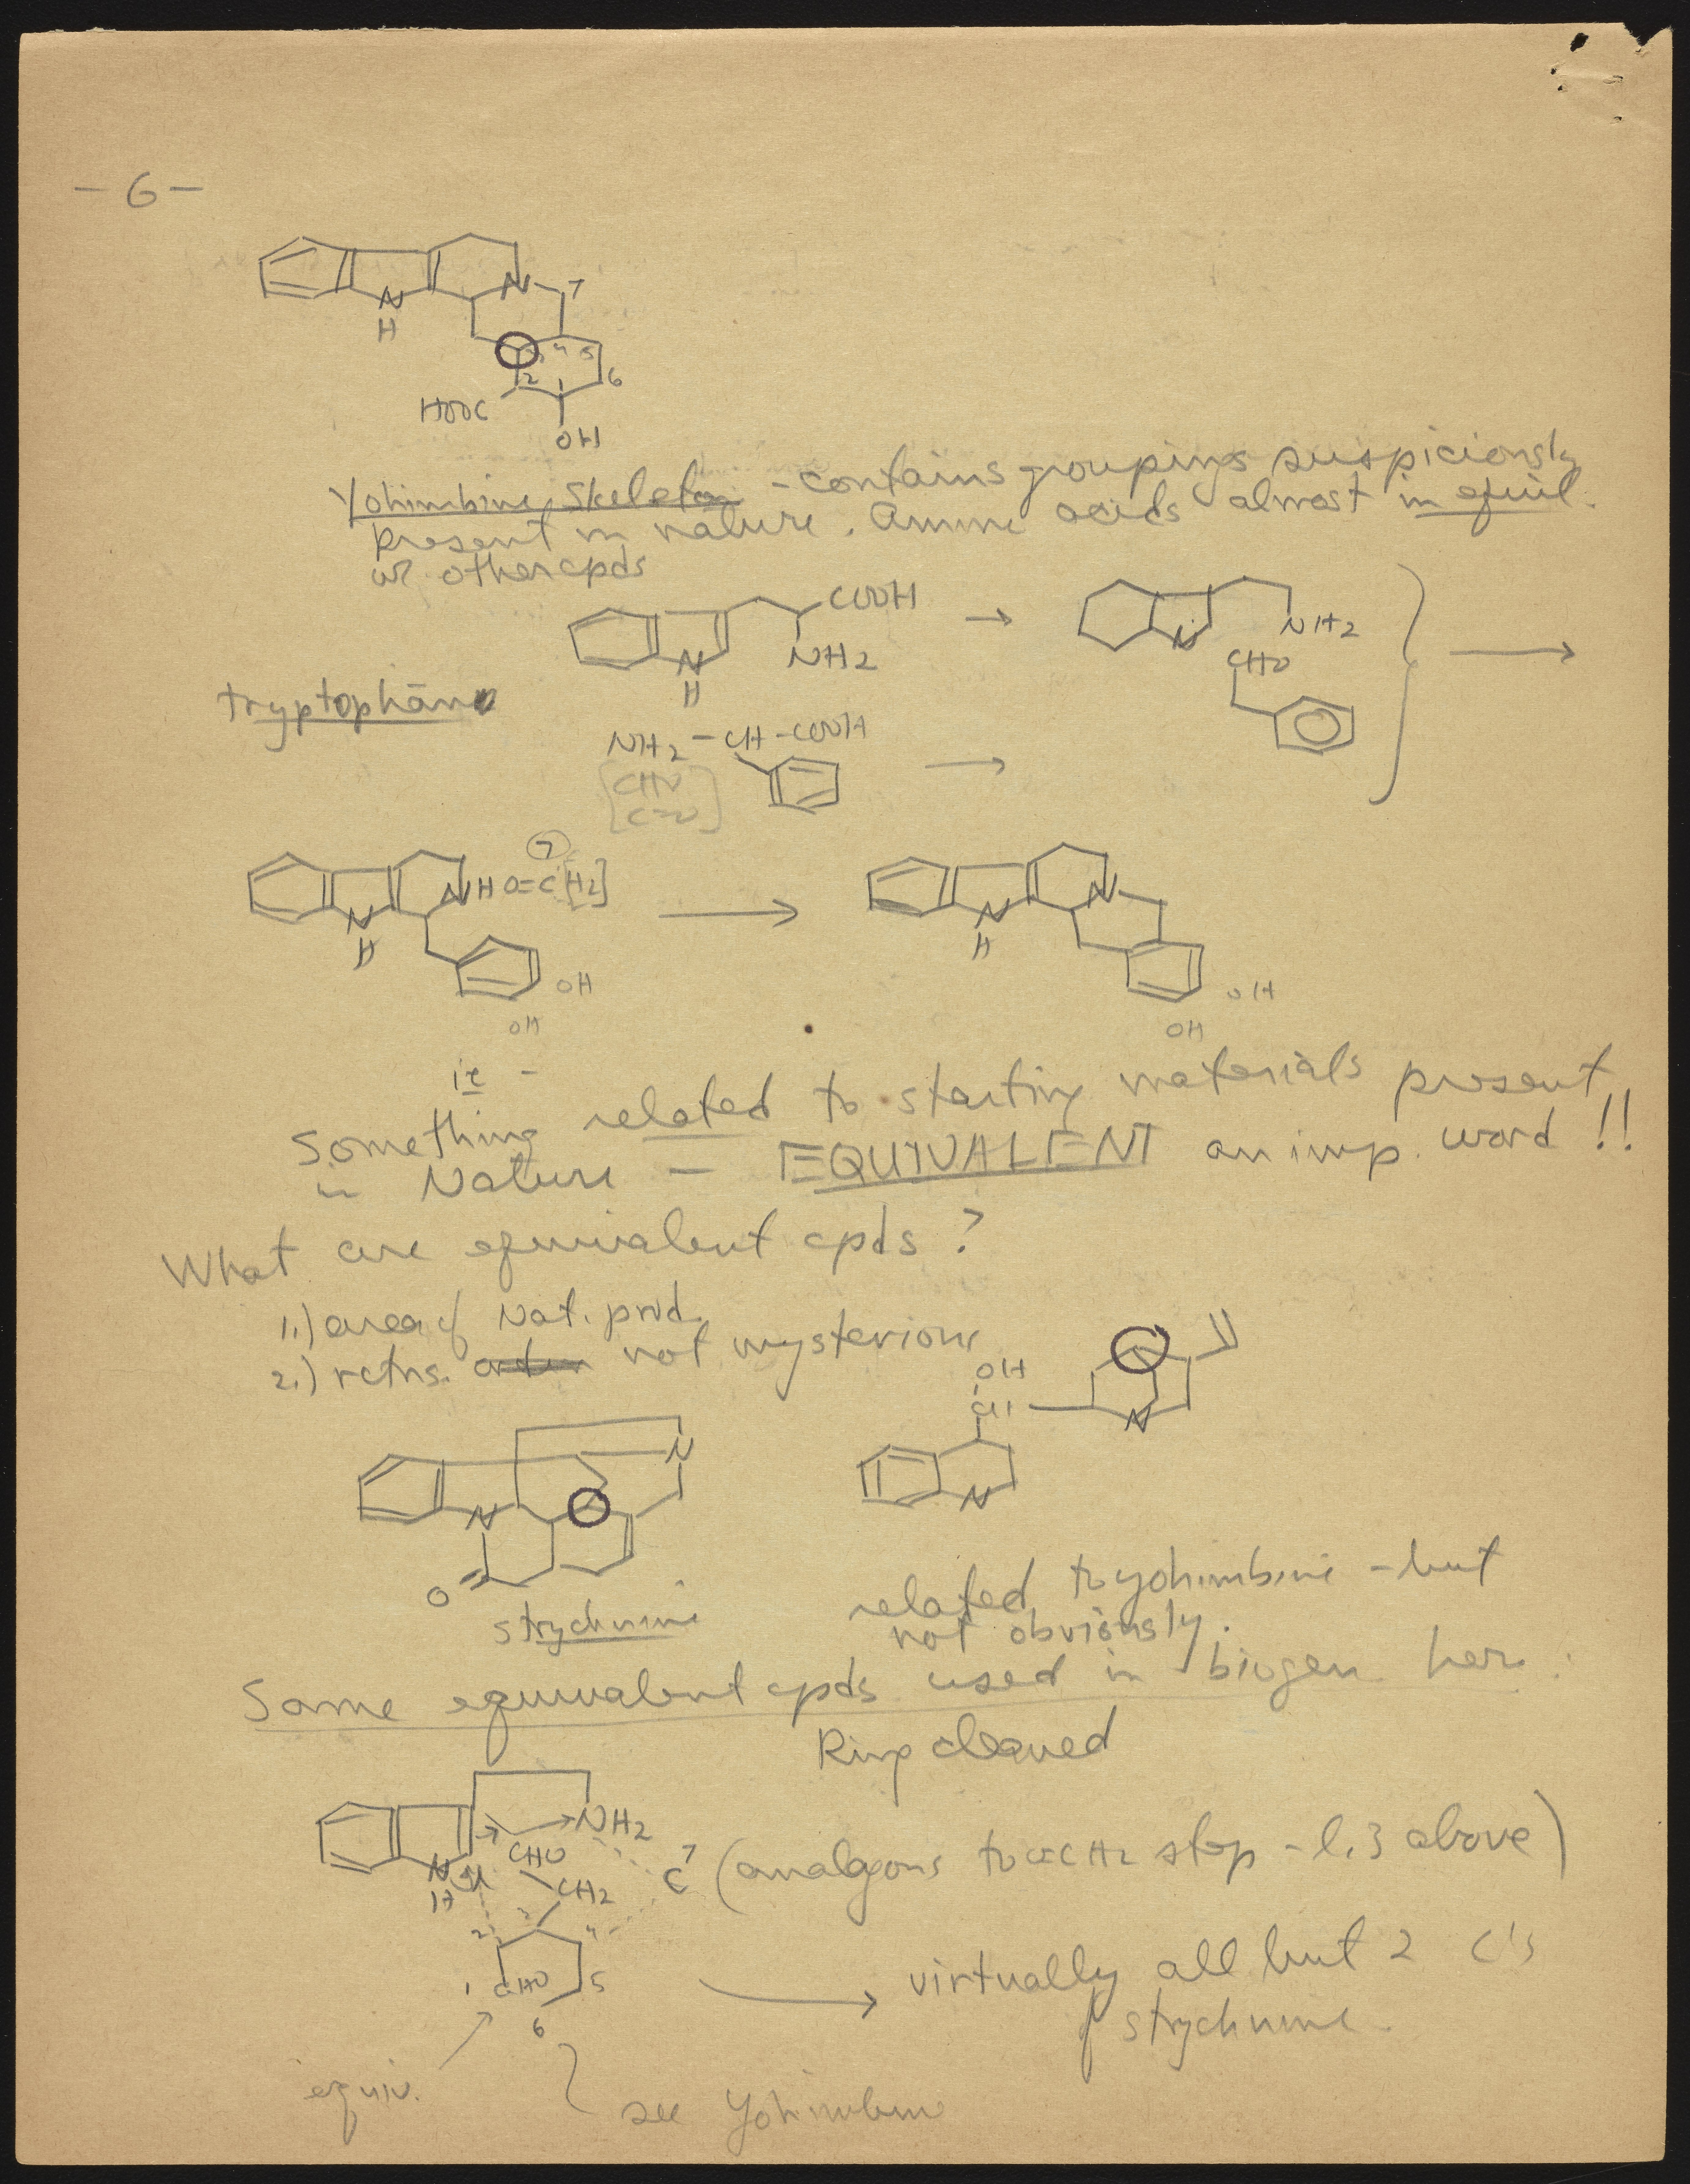 - 6 -
N
H
N
7
3 4 5
2 1 6
HOOC
OH
Yohimbine Skeleton - contains groupings suspiciously
present in nature. Amine acids almost in equil.
w? other cpds
COOH
NH2
N
H
→
N
NH2
CHO
→
tryptophane
NH2 - CH - COOH
[CHO
C=O]
→
7
NH O=C[H2]
N
H
OH
OH
→
N
N
H
OH
OH
ie -
Something related to starting materials present
in Nature - EQUIVALENT an imp. word !!
What are equivalent cpds ?
1.) area of Nat. prod.
2.) rctns. not mysterious
OH
CH
N
N
N
N
O
strychnine
related to yohimbine - but
not obviously.
Same equivalent cpds used in biogen here.
Ring cleaved
NH2
CHO
N
H
CH2
C 7 (analogous to CH2 step - l. 3 above)
2 3 4
1 CHO 5
6
→ virtually all but 2 C's
of strychnine.
equiv.
see Yohimbine